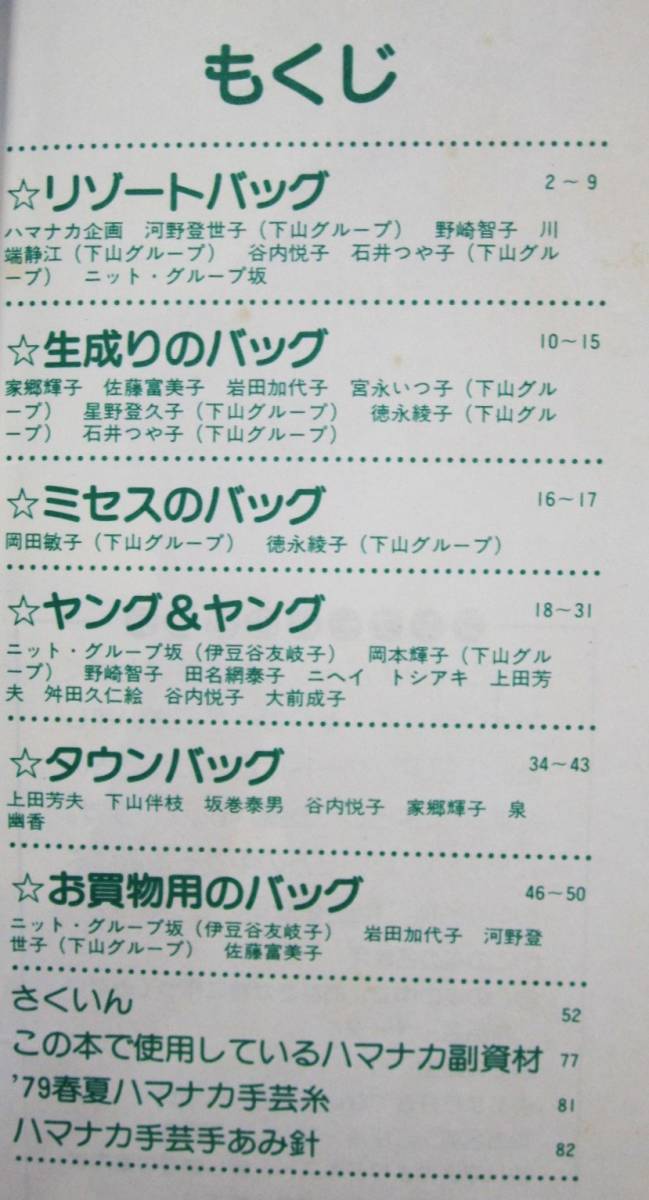 もくじ
☆リゾートバッグ 2～9
ハマナカ企画　河野登世子（下山グループ）　野崎智子　川
端静江（下山グループ）　谷内悦子　石井つや子（下山グル
ープ）　ニット・グループ坂
☆生成りのバッグ 10～15
家郷輝子　佐藤富美子　岩田加代子　宮永いつ子（下山グル
ープ）　星野登久子（下山グループ）　徳永綾子（下山グル
ープ）　石井つや子（下山グループ）
☆ミセスのバッグ 16～17
岡田敏子（下山グループ）　徳永綾子（下山グループ）
☆ヤング&ヤング 18～31
ニット・グループ坂（伊豆谷友岐子）　岡本輝子（下山グル
ープ）　野崎智子　田名網泰子　ニヘイ　トシアキ　上田芳
夫　舛田久仁絵　谷内悦子　大前成子
☆タウンバッグ 34～43
上田芳夫　下山伴枝　坂巻泰男　谷内悦子　家郷輝子　泉
幽香
☆お買物用のバッグ 46～50
ニット・グループ坂（伊豆谷友岐子）　岩田加代子　河野登
世子（下山グループ）　佐藤富美子
さくいん 52
この本で使用しているハマナカ副資材 77
'79春夏ハマナカ手芸糸 81
ハマナカ手芸手あみ針 82